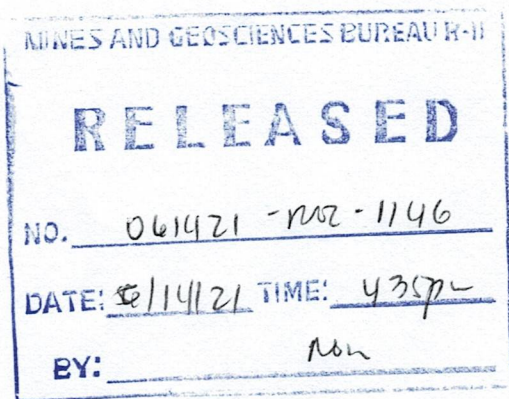 MINES AND GEOSCIENCES BUREAU R-II
RELEASED
NO. 061421 - - 1146
DATE: 6/14/21 TIME: 435pm
BY: